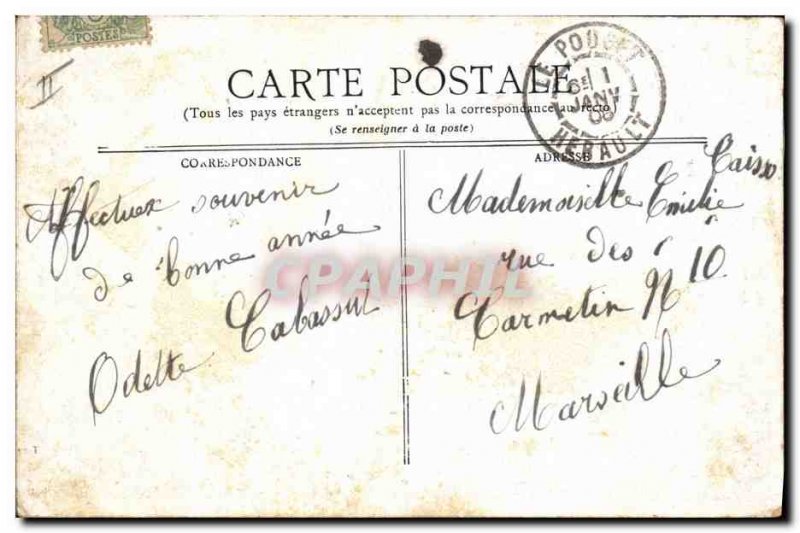 POSTES
II
CARTE POSTALE
(Tous les pays étrangers n'acceptent pas la correspondance au recto)
(Se renseigner à la poste)
LE POUGET
6E 1
JANV
06
HERAULT
CORRESPONDANCE
Affectueux souvenir
de bonne année
Odette Cabassut
ADRESSE
Mademoiselle Emilie
rue des
Carmelin N 10.
Marseille
CPAPHIL